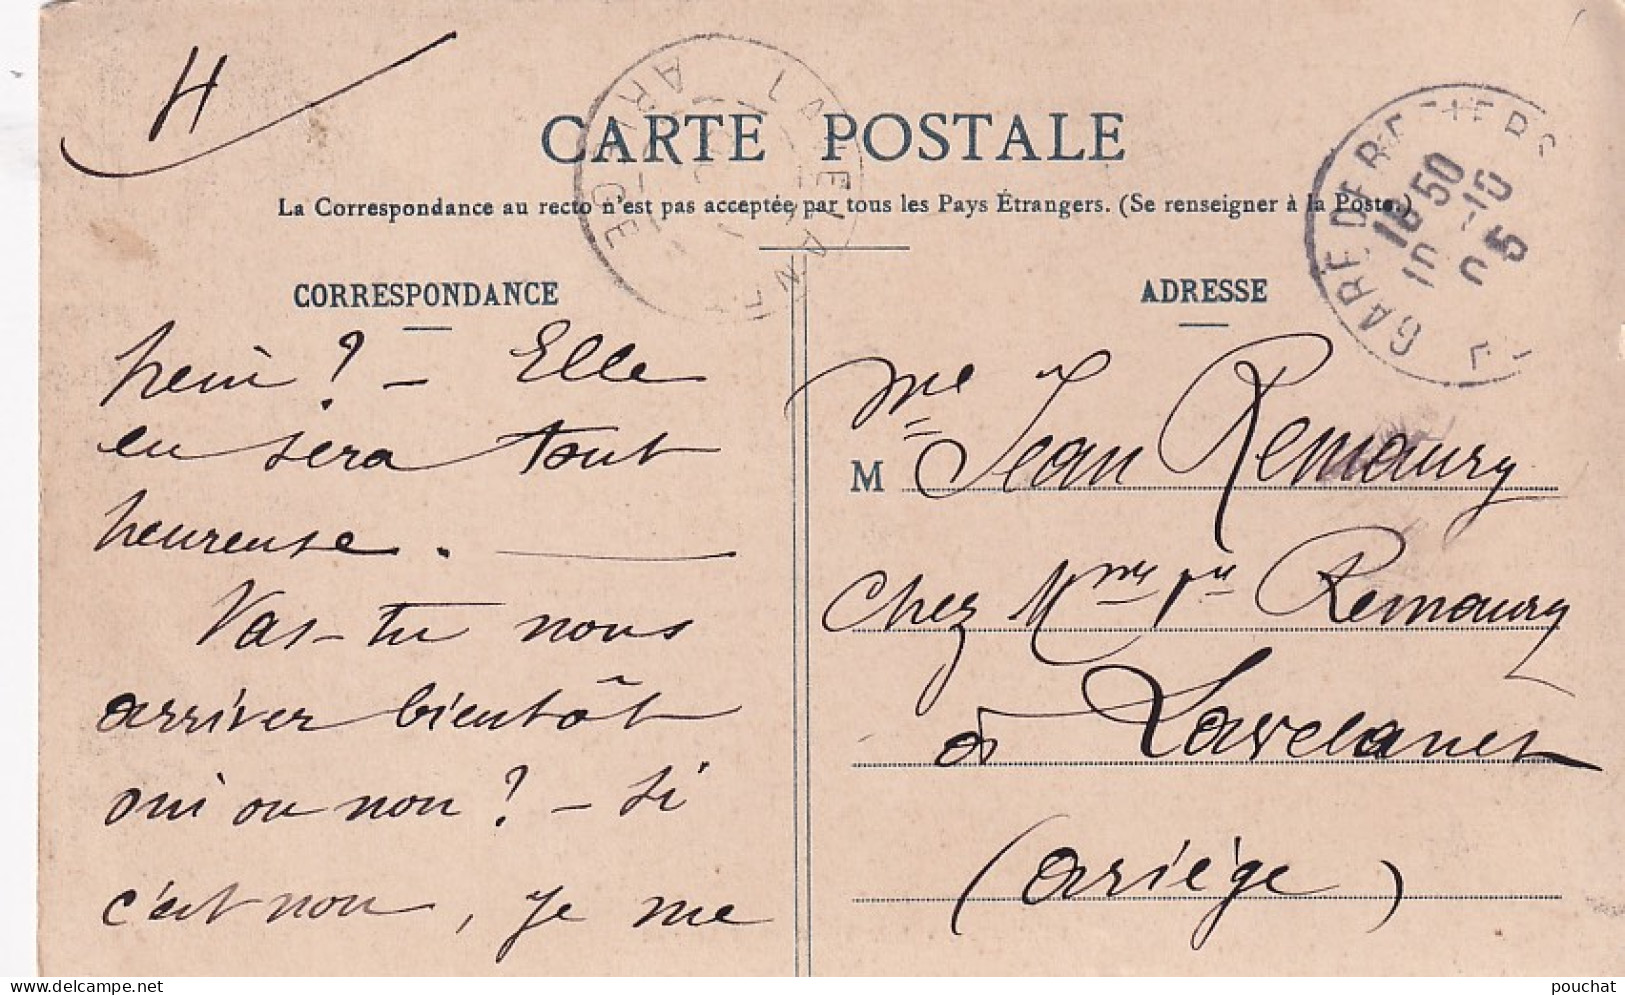 H
CARTE POSTALE
La Correspondance au recto n'est pas acceptée par tous les Pays Étrangers. (Se renseigner à la Poste.)
CORRESPONDANCE
hein ? - Elle
en sera tout
heureuse.
Vas-tu nous
arriver bientôt
oui ou non ? - si
c'est non, je me
ADRESSE
Mme
M Jean Remaury
Chez Mme Remaury
à Lavelanet
(Ariège)
LAVELANET
ARIEGE
GARE DE
18 50
10 -10
05
www.delcampe.net
pouchat